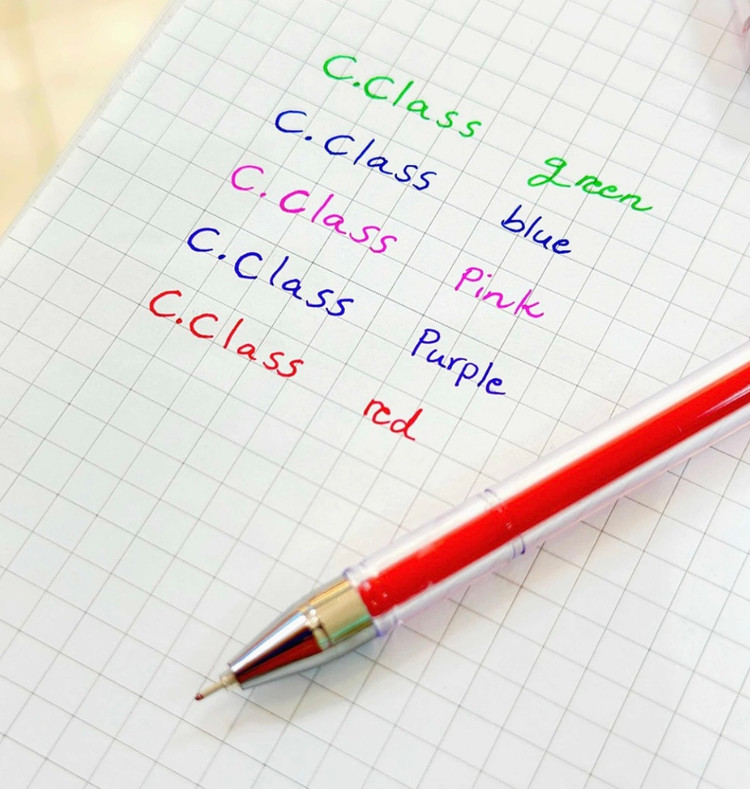 C.Class green
C.Class blue
C.Class Pink
C.Class Purple
C.Class red